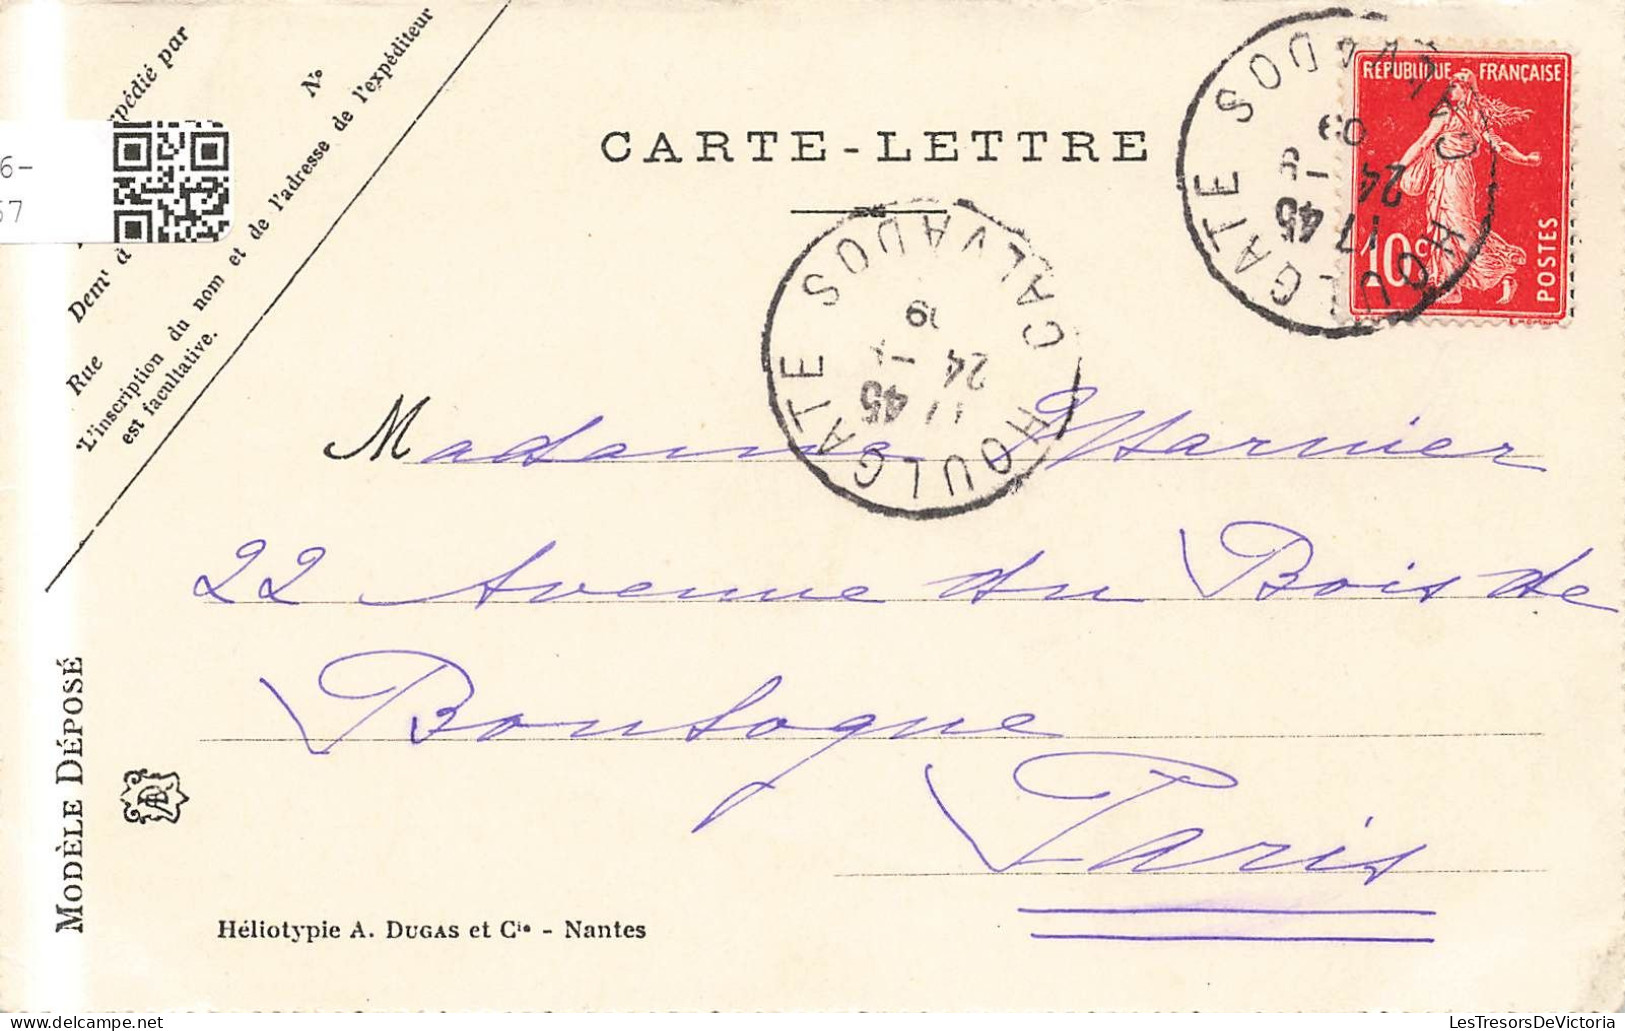 Expédié par
N°
Demt d
Rue
L'inscription du nom et de l'adresse de l'expéditeur
est facultative.
6-
57
CARTE-LETTRE
RÉPUBLIQUE FRANÇAISE
10c
POSTES
HOULGATE CALVADOS
17 45
24
09
HOULGATE CALVADOS
17 45
24
09
Madame Warnier
22 Avenue du Bois de
Boulogne
Paris
MODÈLE DÉPOSÉ
Héliotypie A. DUGAS et Cie - Nantes
LesTresorsDeVictoria